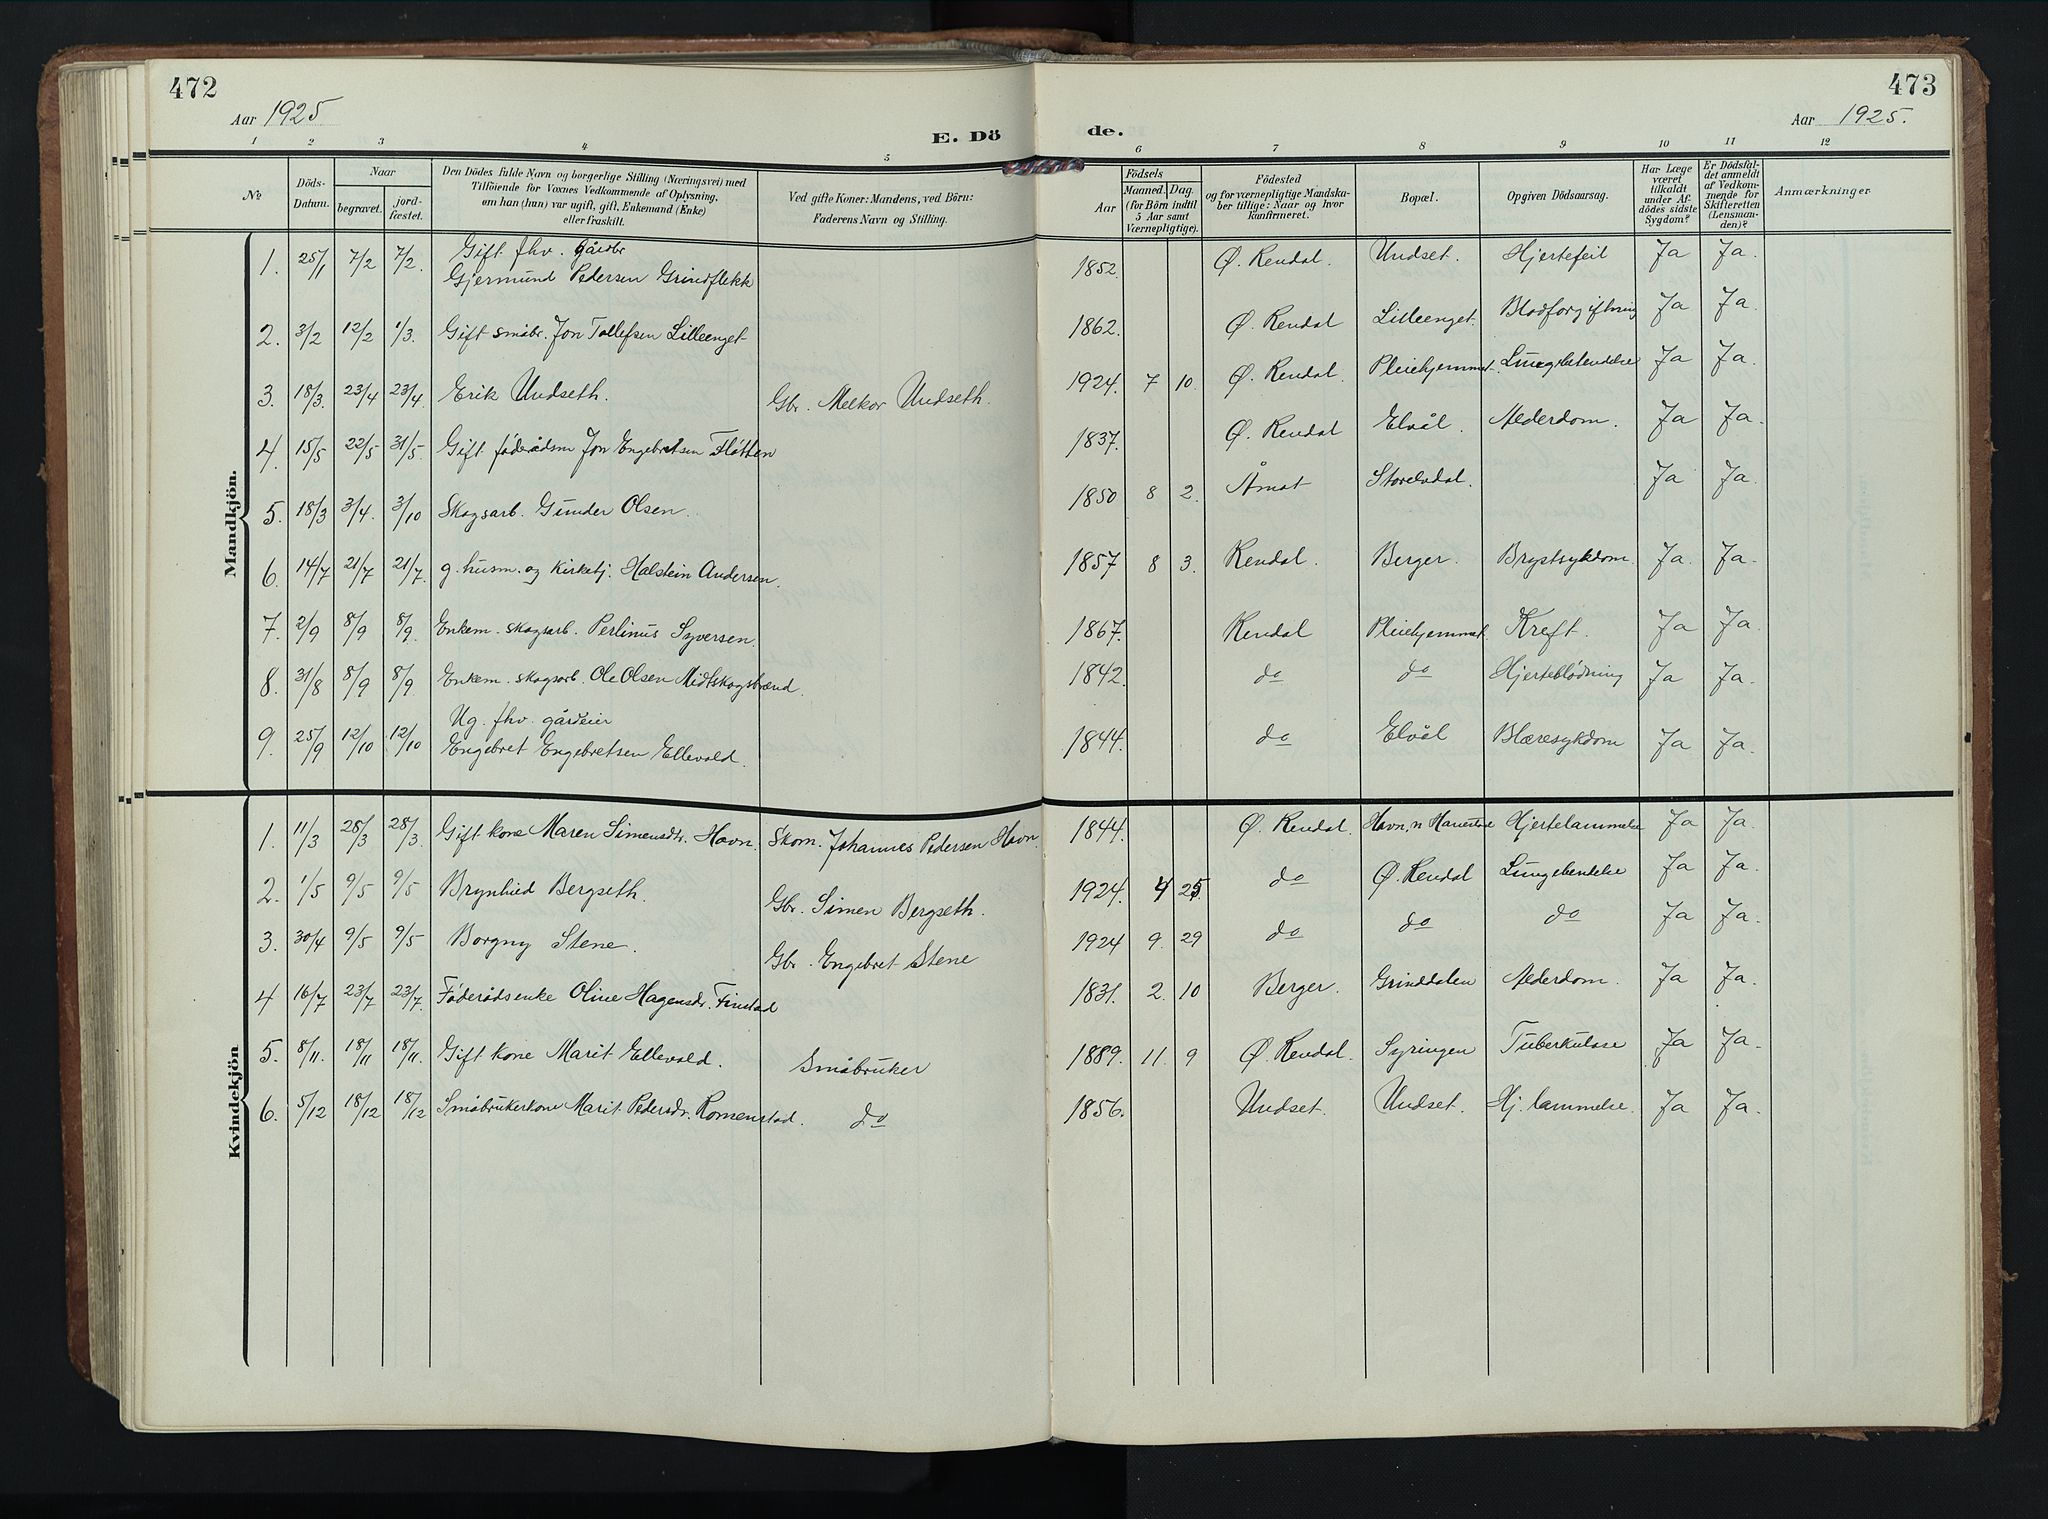 472
Aar 1925
E. Dö
1 2 3 4 5
No
Döds-
Datum.
Naar
begravet.
jord-
fæstet.
Den Dödes fulde Navn og borgerlige Stilling (Næringsvei) med
Tilföiende for Voxnes Vedkommende af Oplysning,
om han (hun) var ugift, gift, Enkemand (Enke)
eller fraskilt.
Ved gifte Koner: Mandens, ved Börn:
Faderens Navn og Stilling.
Mandkjön.
1. 25/1 7/2 7/2. Gift fhv. gårdbr
Gjermund Pedersen Grindflekk
2. 3/2 12/2 1/3. Gift småbr. Jon Tollefsen Lilleenget
3. 18/3. 23/4 23/4. Erik Undseth. Gbr. Melkor Undseth.
4. 15/5 22/5 31/5. Gift föderådsm Jon Engebretsen Flötten
5. 18/3 3/4. 3/10 Skogsarb. Gunder Olsen.
6. 14/7 21/7 21/7. g. husm. og Kirketj. Halstein Andersen.
7. 2/9 8/9 8/9. Enkem. skogsarb. Perlinus Syversen.
8. 31/8 8/9 8/9 Enkem. skogsarb. Ole Olsen Midtskogsbrænd.
9. 25/9 12/10 12/10 Ug. fhv. gårdeier
Engebret Engebretsen Ellevold.
Kvindekjön
1. 11/3 28/3 28/3. Gift kone Maren Simensdtr. Havn. Skom. Johannes Pedersen Havn.
2. 1/5 9/5 9/5 Brynhild Bergseth. Gbr. Simen Bergseth.
3. 30/4 9/5 9/5 Borgny Stene. Gbr. Engebret Stene
4 16/7 23/7 23/7. Föderådsenke Oline Hagensdr. Finstad
5. 8/11. 18/11 18/11. Gift kone Marit Ellevold. Småbruker
6. 5/12 18/12 18/12 Småbrukerkone Marit Pedersdr. Romenstad. do
473
Aar 1925.
de.
6 7 8 9 10 11 12
Födsels
Aar
Maaned. Dag.
(for Börn indtil
5 Aar samt
Værnepligtige).
Födested
og for værnepligtige Mandska-
ber tillige: Naar og hvor
konfirmeret.
Bopæl.
Opgiven Dödsaarsag.
Har Læge
været
tilkaldt
under Af-
dödes sidste
Sygdom?
Er Dödsfal-
det anmeldt
af Vedkom-
mende for
Skifteretten
(Lensman-
den)?
Anmærkninger
1852. Ø. Rendal. Undset. Hjertefeil Ja Ja.
1862. Ø. Rendal Lilleenget. Blodforgiftning Ja Ja.
1924. 7 10. Ø. Rendal. Pleiehjemmet. Lungebetendelse Ja Ja.
1837. Ø. Rendal Elvål. Alderdom. Ja Ja.
1850 8 2. Åmot Storelvdal. Ja Ja.
1857 8 3. Rendal. Berger. Brystsykdom. Ja. Ja.
1867. Rendal Pleiehjemmet. Kreft. Ja Ja.
1842. do do Hjerteblödning Ja Ja.
1844. do Elvål Blæresykdom Ja Ja.
1844. Ø. Rendal. Havn, n Hjertelammelse Ja Ja.
1924. 4 25 do Ø. Rendal Ja Ja.
1924 9. 29 do do do Ja Ja.
1831. 2. 10 Berger. Grinddalen Alderdom. Ja Ja.
1889. 11. 9 Ø. Rendal. Syringen Tuberkulose Ja Ja.
1856. Undset. Undset. Hj. lammelse. Ja Ja.